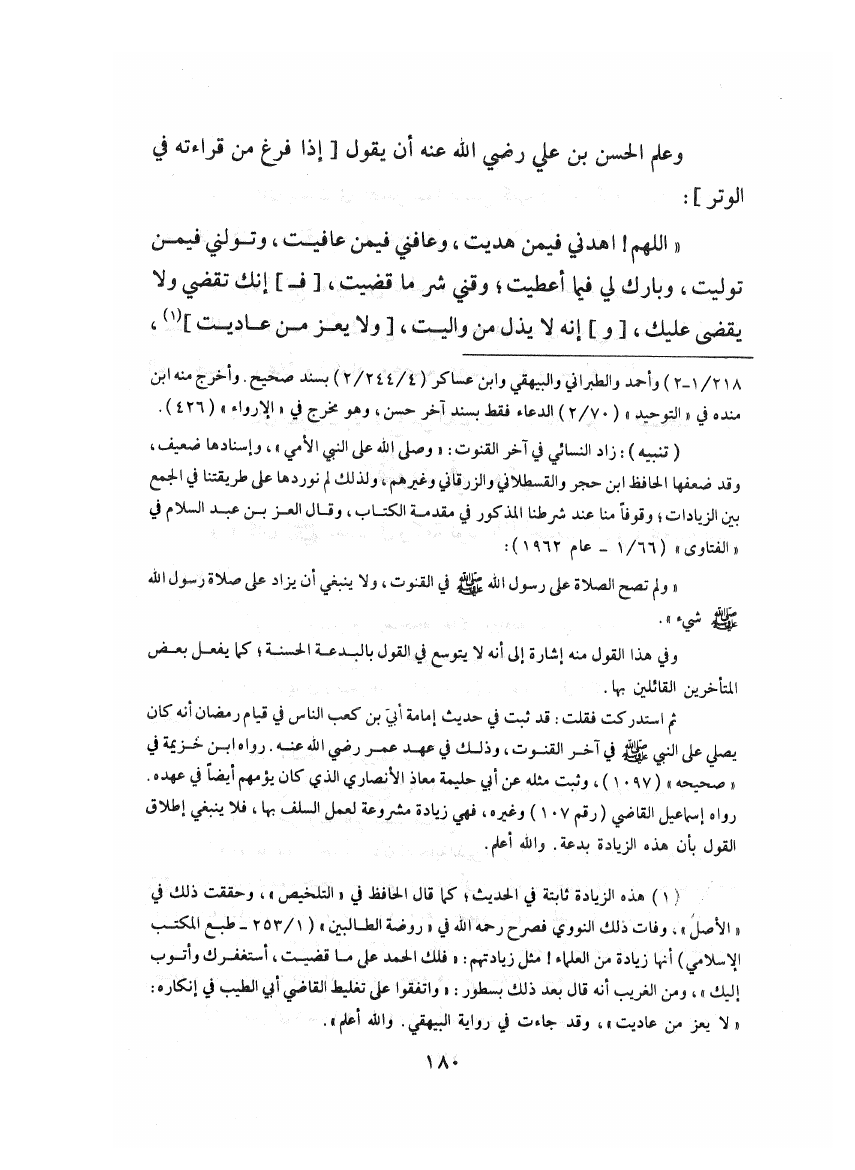 وعلم الحسن بن علي رضي الله عنه أن يقول [ إذا فرغ من قراءته في
الوتر ] :
« اللهم ! اهدني فيمن هديت ، وعافني فيمن عافيت ، وتولني فيمن
توليت ، وبارك لي فيما أعطيت ؛ وقني شر ما قضيت ، [ فـ ] إنك تقضي ولا
يقضى عليك ، [ و ] إنه لا يذل من واليت ، [ ولا يعز من عاديت ](١) ،
٢١٨/١-٢ ) وأحمد والطبراني والبيهقي وابن عساكر ( ٤/٢٤٤/٢ ) بسند صحيح . وأخرج منه ابن
منده في « التوحيد » ( ٧٠/٢ ) الدعاء فقط بسند آخر حسن ، وهو مخرج في « الإرواء » ( ٤٢٦ ) .
( تنبيه ) : زاد النسائي في آخر القنوت : « وصلى الله على النبي الأمي » ، وإسنادها ضعيف ،
وقد ضعفها الحافظ ابن حجر والقسطلاني والزرقاني وغيرهم ، ولذلك لم نوردها على طريقتنا في الجمع
بين الزيادات ؛ وقوفاً منا عند شرطنا المذكور في مقدمة الكتاب ، وقال العز بن عبد السلام في
« الفتاوى » ( ٦٦/١ - عام ١٩٦٢ ) :
« ولم تصح الصلاة على رسول الله ﷺ في القنوت ، ولا ينبغي أن يزاد على صلاة رسول الله
ﷺ شيء » .
وفي هذا القول منه إشارة إلى أنه لا يتوسع في القول بالبدعة الحسنة ؛ كما يفعل بعض
المتأخرين القائلين بها .
ثم استدركت فقلت : قد ثبت في حديث إمامة أبيّ بن كعب الناس في قيام رمضان أنه كان
يصلي على النبي ﷺ في آخر القنوت ، وذلك في عهد عمر رضي الله عنه . رواه ابن خزيمة في
« صحيحه » ( ١٠٩٧ ) ، وثبت مثله عن أبي حليمة معاذ الأنصاري الذي كان يؤمهم أيضاً في عهده .
رواه إسماعيل القاضي ( رقم ١٠٧ ) وغيره ، فهي زيادة مشروعة لعمل السلف بها ، فلا ينبغي إطلاق
القول بأن هذه الزيادة بدعة . والله أعلم .
( ١ ) هذه الزيادة ثابتة في الحديث ؛ كما قال الحافظ في « التلخيص » ، وحققت ذلك في
« الأصل » ، وفات ذلك النووي فصرح رحمه الله في « روضة الطالبين » ( ٢٥٣/١ - طبع المكتب
الإسلامي ) أنها زيادة من العلماء ! مثل زيادتهم : « فلك الحمد على ما قضيت ، أستغفرك وأتوب
إليك » ، ومن الغريب أنه قال بعد ذلك بسطور : « واتفقوا على تغليط القاضي أبي الطيب في إنكاره :
« لا يعز من عاديت » ، وقد جاءت في رواية البيهقي . والله أعلم » .
١٨٠